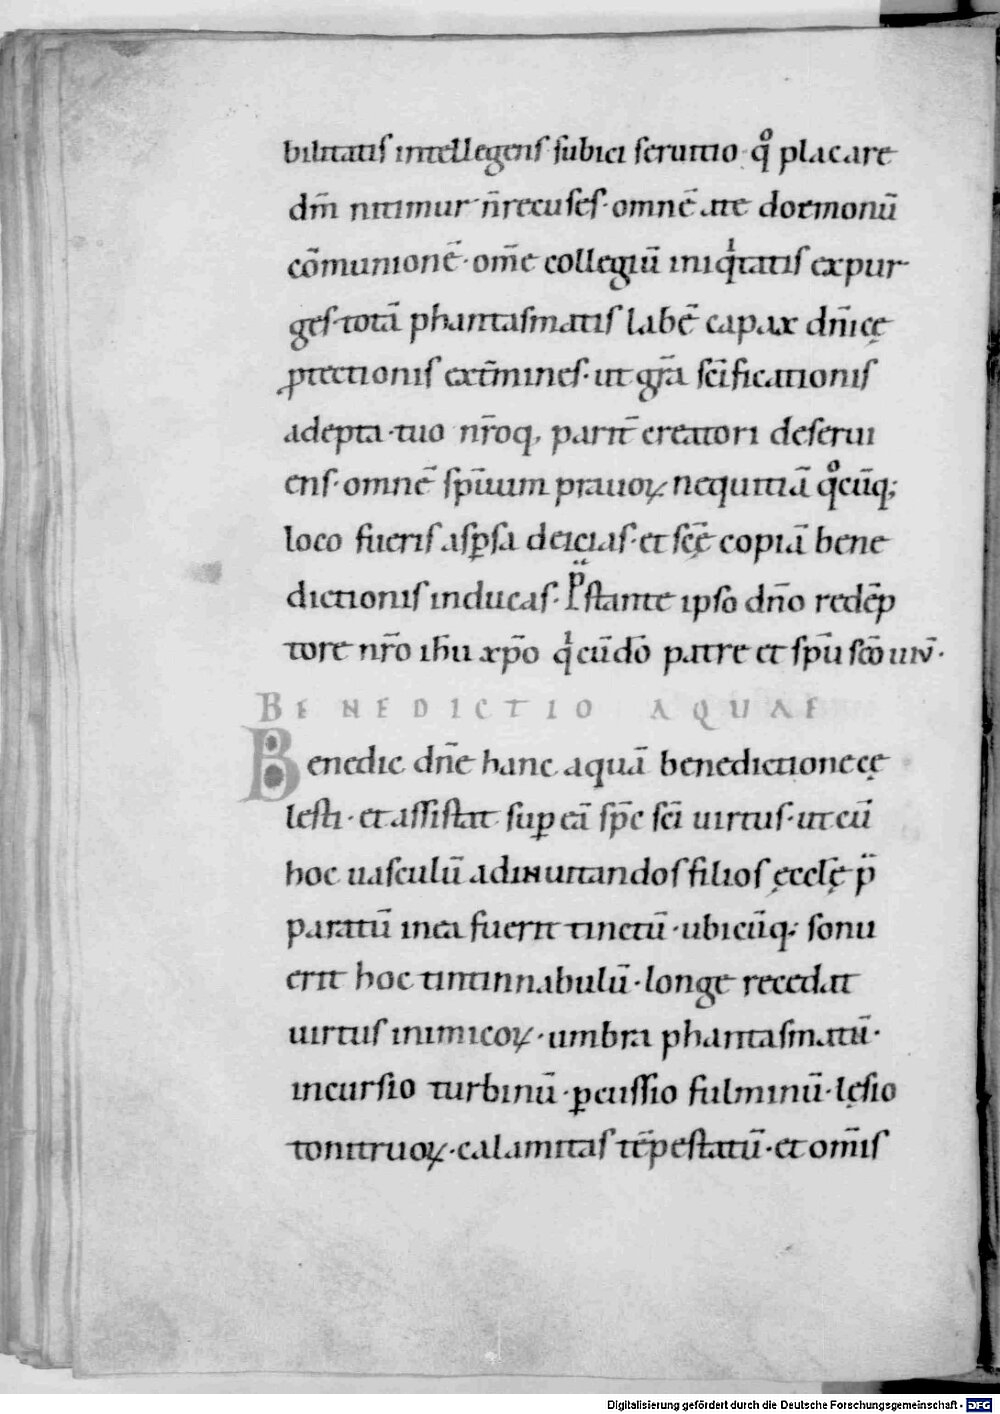 bilitatis intellegens subici seruitio q̊ placare
dm̄ nitimur n̄ recuses· omnē a te dęmonū
cōmunionē· om̄e collegiū iniqͥtatis expur-
ges· totā phantasmatis labē capax dn̄icę
ꝓtectionis ext̄mines· ut gr̄a sc̄ificationis
adepta· tuo nr̄oq, parit̄ creatori deserui
ens· omnē sp̄uum prauoꝝ nequitiā q̊cūq;
loco fueris asꝑsa deicias· et sc̄ę copiā bene
dictionis inducas· P̈stante ipso dn̄o redēp
tore nr̄o ih̄u xp̄o qͥ cū dō patre et sp̄u sc̄o uiv̄·
BENEDICTIO AQUAE
Benedic dn̄e hanc aquā benedictione cę
lesti· et assistat suꝑ eā sp̄c sc̄i uirtus· ut cū
hoc uasculū ad inuitandos filios ęccl̄ę p̈
paratū in ea fuerit tinctū· ubicūq; sonu
erit hoc tintinnabulū· longe recedat
uirtus inimicoꝝ· umbra phantasmatū·
incursio turbinū· ꝑcussio fulminū· lęsio
tonitruoꝝ· calamitas tēpestatū· et om̄is
Digitalisierung gefördert durch die Deutsche Forschungsgemeinschaft - DFG